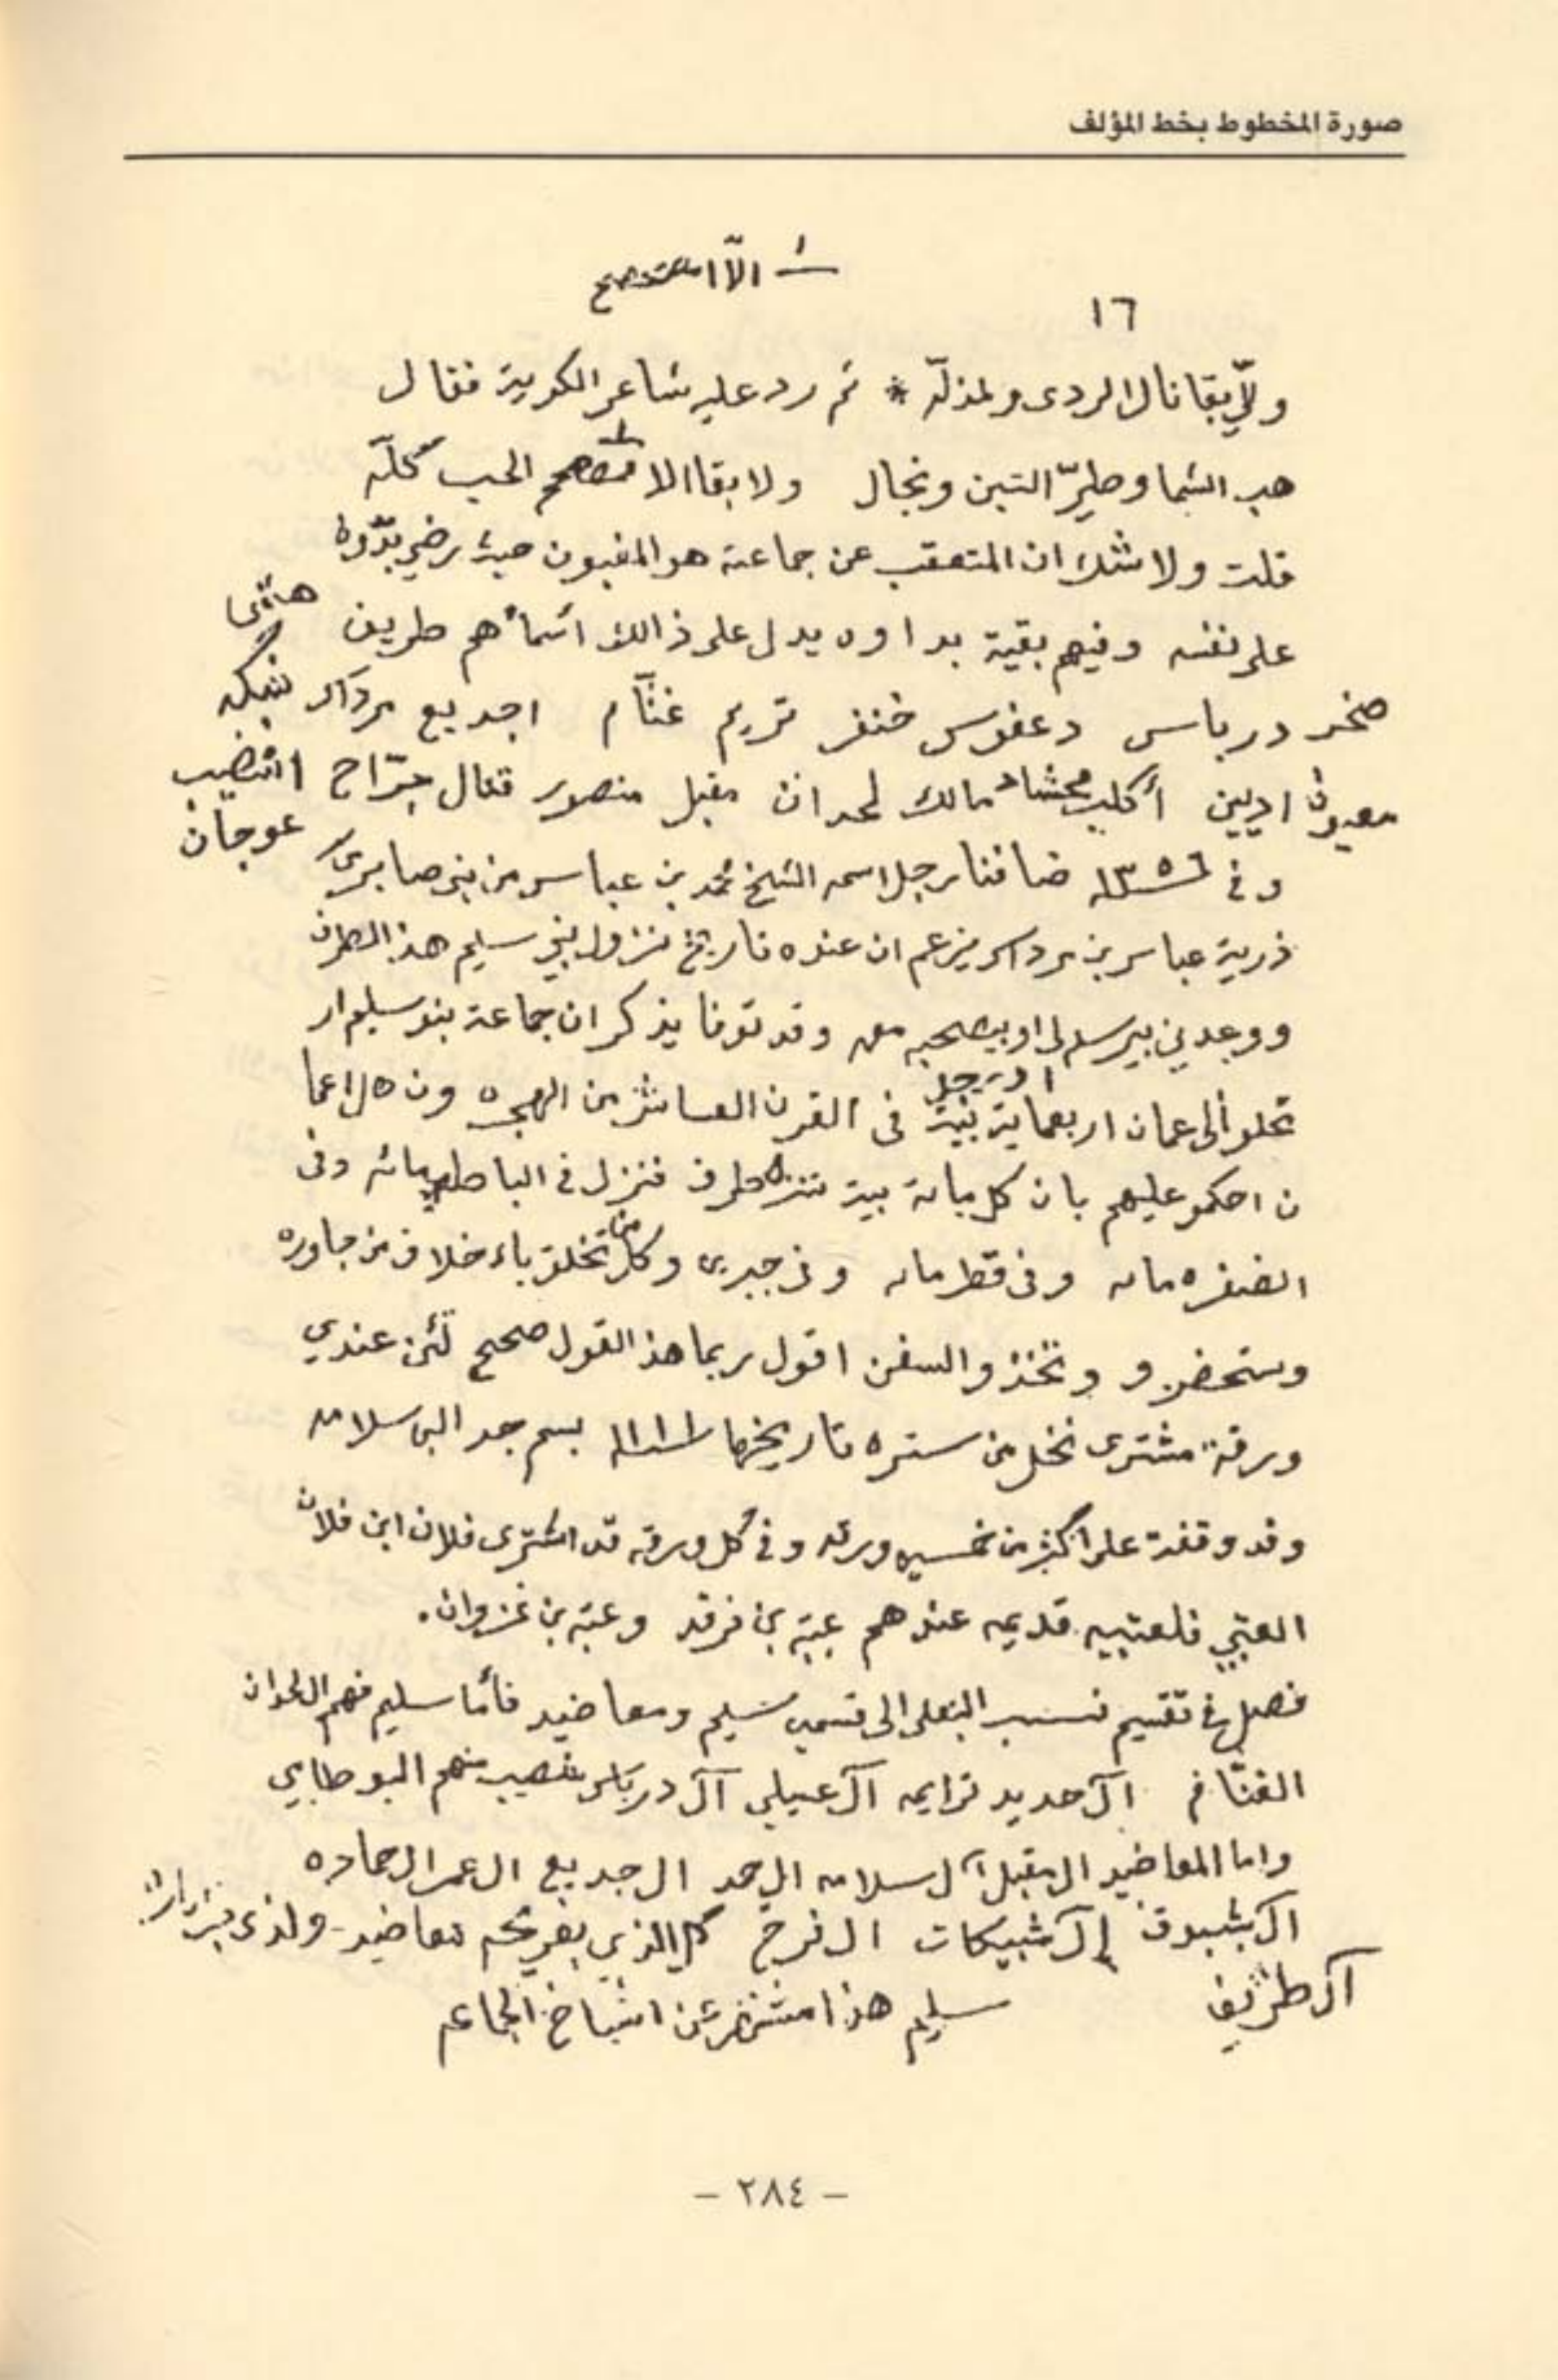 صورة المخطوط بخط المؤلف
الّا
١٦
ولّي بقا نال الردى ولمذلّه * ثم رد عليه شاعر الكويت فقال
هب الشما وطيرّ التبن ونجال ولا بقا الا الحب كلّه
قلت ولا شك ان المتعقب عن جماعته هو المغبون حيث رضي بدّوه
على نفسه وفيهم بقية بداوه يدل على ذالك اسمأهم طريف
صخر درباس دعفوس خنفر تريم غنّام اجديع مردآس
معيوف ادبين أكليب محشاد مالك لحدان مقبل منصور قتال جرّاح
عوجان
وفي ١٣٥٦ ضافنا رجل اسمه الشيخ محمد بن عباس من بني صابري
ذرية عباس بن مرداس يزعم ان عنده تاريخ نزول بني سليم هذا الطرف
ووعدني بيرسله لي او بيصحبه معه وقد توفا يذكر ان جماعة بنو سليم ار
تحلو ألى عمان اربعماية بيت في القرن العاشر من الهجره ون اهل اعما
او رجل
ن احكمو عليهم بان كل ماىة بيت تنزل طرف فنزل في الباطنه مائه وفى
الضفره ماىه وفى قطر ماىه وفى جبرى وكل من تخلق باء خلاق من جاوره
وستحضرو وتخذو السفن اقول ربما هذا القول صحيح لئن عندي
ورقة مشترى نخل من ستره تاريخها ١١١١ بسم جد البى سلامه
وقد وقفت على اكثر من خمسين ورقه وفي كل ورقه قد اشترى فلان ابن فلان
العتبي فلعتبيه قديمه عندهم عتبه بن فرقد وعتبه بن غزوان.
فصل في تقسيم نسب البنعلى الى قسمين سليم ومعاضيد فأما سليم فهم ال لحدان
الغنّام آل حديد ترايمه آل عيلي آل درباس منهم البو طابي
واما المعاضيد ال مقبل آل سلامه ال حمد ال جديع ال عمر ال حماده
ال بشبوق إل شبيكات ال فرج كل الذي بفريحه معاضيد - ولذى
آل طريف
سليم هذا مشتهر عن اشياخ الجماعه
- ٢٨٤ -